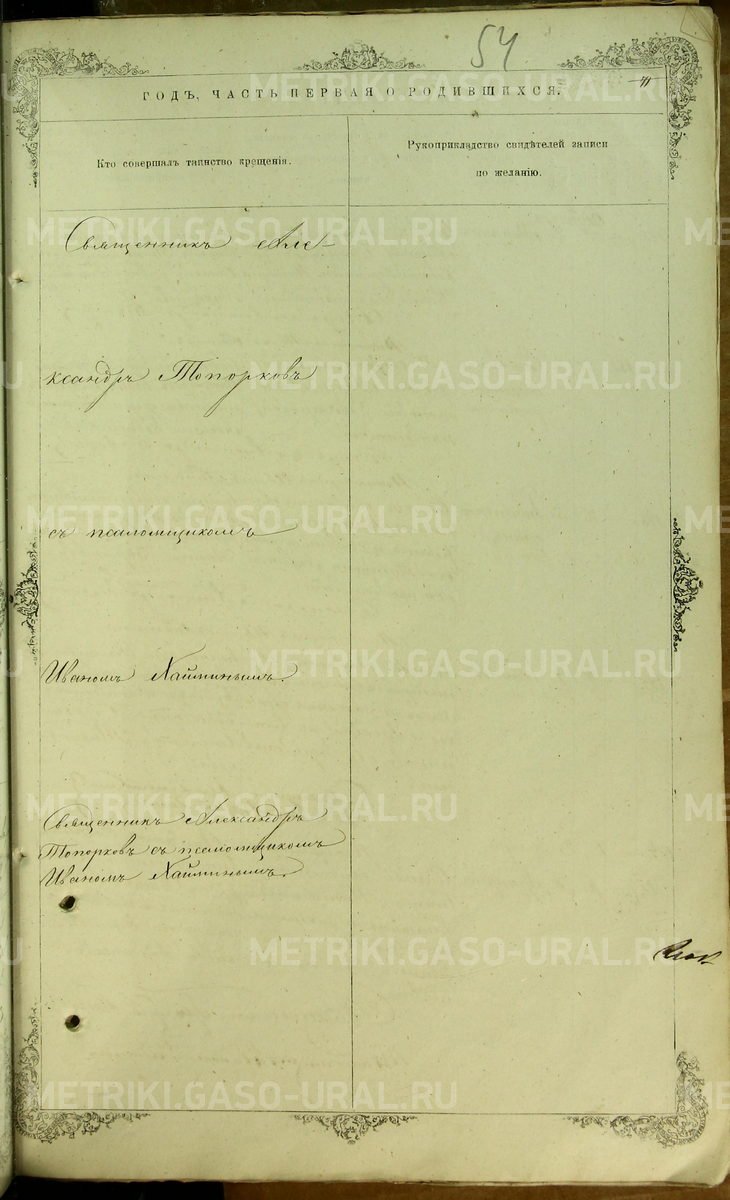 54
ГОДЪ, ЧАСТЬ ПЕРВАЯ О РОДИВШИХСЯ.
Кто совершалъ таинство крещенія.
Рукоприкладство свидѣтелей записи
по желанію.
Священникъ Але-
ксандръ Топорковъ
съ псаломщикомъ
Иваномъ
Священникъ Александръ
Топорковъ съ псаломщикомъ
Иваномъ
METRIKI.GASO-URAL.RU